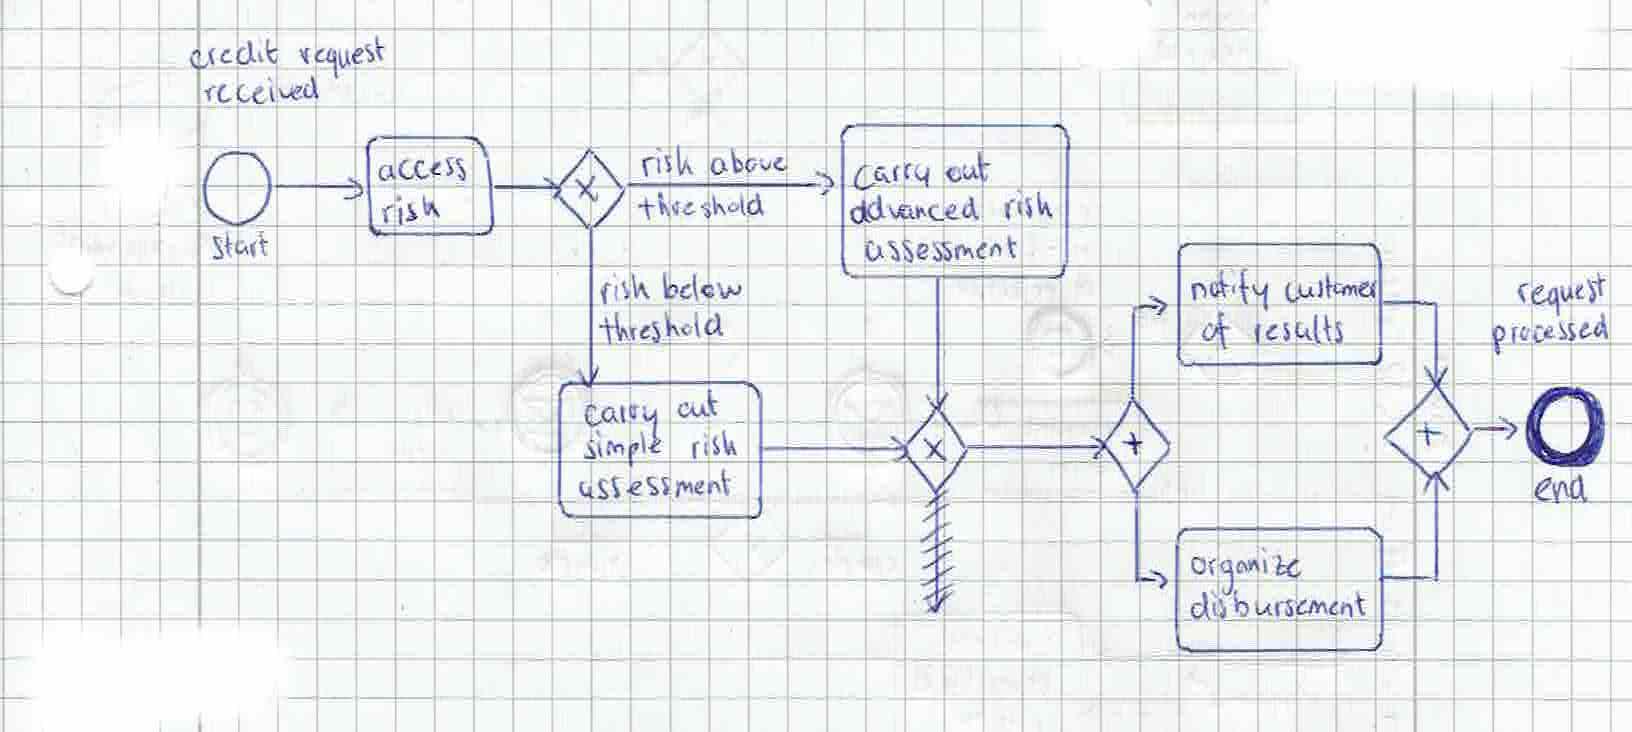 credit request
received
start
access
risk
X
risk above
threshold
risk below
threshold
carry out
advanced risk
assessment
carry out
simple risk
assessment
X
+
notify customer
of results
organize
disbursement
+
request
processed
end